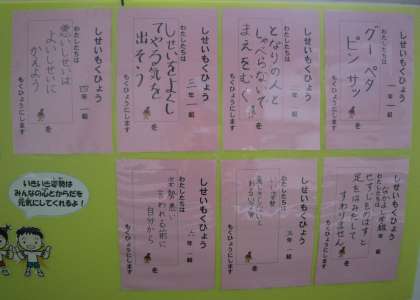 しせいもくひょう
一年一組
わたしたちは
グー ペタ
ピン サッ
を
もくひょうにします
しせいもくひょう
二年一組
わたしたちは
となりの人と
しゃべらないで
まえをむく
を
もくひょうにします
しせいもくひょう
三年一組
わたしたちは
しせいをよくし
てやる気を
出そう
を
もくひょうにします
しせいもくひょう
四年一組
わたしたちは
悪いしせいは
よいしせいに
かえよう
を
もくひょうにします
しせいもくひょう
わたしたちは
せすじをのばすと
足をゆかにして
すわりません
を
もくひょうにします
しせいもくひょう
五年一組
わたしたちは
を
もくひょうにします
しせいもくひょう
六年一組
わたしたちは
姿勢悪い
言われる前に
自分から
を
もくひょうにします
いきいき姿勢は
みんなの心とからだを
元気にしてくれるよ!